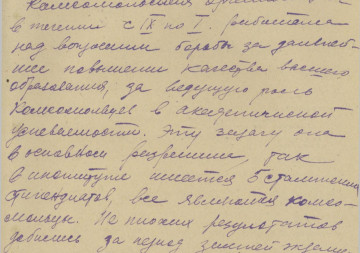 Комсомольская
в течении с IX по I работала
над вопросом борьбы за дальней-
шее повышении качества высшего
образования, за ведущую роль
комсомольцев в академической
успеваемости. Эту задачу она
в основном разрешила, так
в институте имеется 6 сталинских
стипендиатов, все являются комсо-
мольцы. Не плохих результатов
добились за период зимней экзаме-